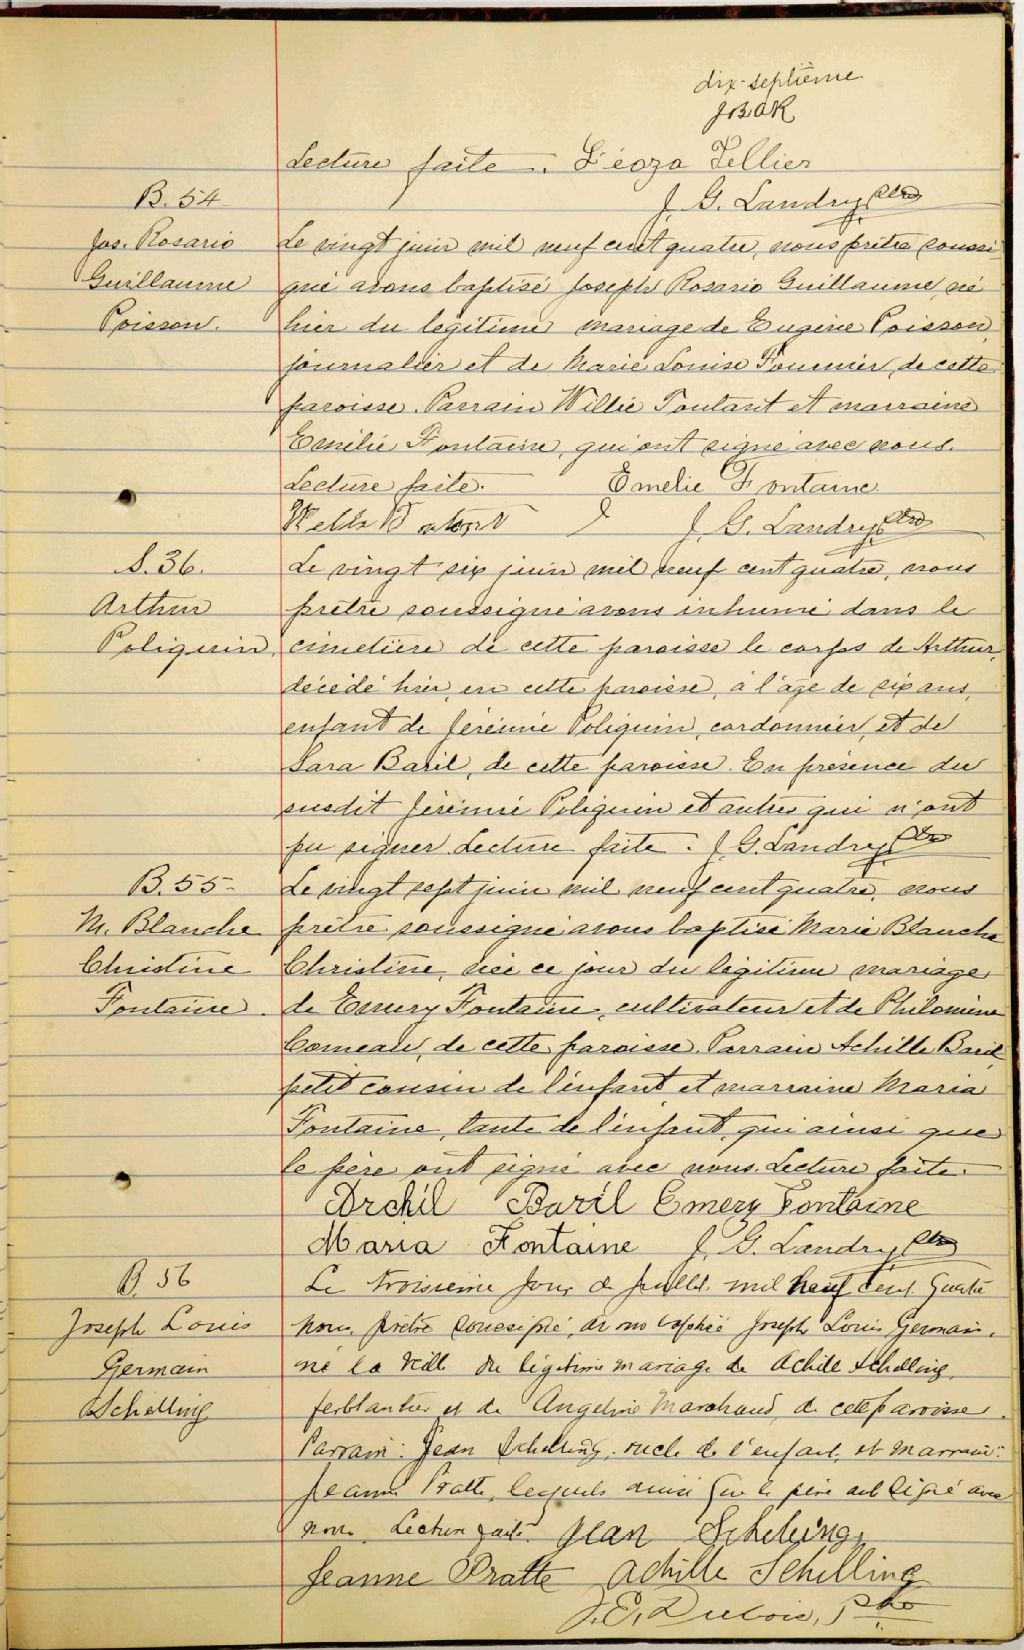 dix-septième
Lecture faite. Tellier
B. 54
J. G. Landry, ptre
Jos. Rosario
Guillaume
Poisson.
Le vingt juin mil neuf cent quatre, nous prêtre soussi-
gné avons baptisé Joseph Rosario Guillaume, né
hier du légitime mariage de Eugène Poisson,
journalier et de Marie Louise Fournier, de cette
paroisse. Parrain Willie Toutant et marraine
Emélie Fontaine, qui ont signé avec nous.
Lecture faite. Emelie Fontaine.
J. G. Landry, ptre
S. 36.
Arthur
Poliquin.
Le vingt six juin mil neuf cent quatre, nous
prêtre soussigné avons inhumé dans le
cimetière de cette paroisse le corps de Arthur,
décédé hier, en cette paroisse, à l'âge de six ans,
enfant de Jérémie Poliquin, cordonnier, et de
Sara Baril, de cette paroisse. En présence du
susdit Jérémie Poliquin et autres qui n'ont
pu signer. Lecture faite. J. G. Landry, ptre
B. 55
M. Blanche
Christine
Fontaine.
Le vingt sept juin mil neuf cent quatre, nous
prêtre soussigné avons baptisé Marie Blanche
Christine, née ce jour du légitime mariage
de Emery Fontaine, cultivateur et de Philomène
Comeau, de cette paroisse. Parrain Achille Baril,
petit cousin de l'enfant et marraine Maria
Fontaine, tante de l'enfant, qui ainsi que
le père ont signé avec nous. Lecture faite.
Archil Baril Emery Fontaine
Maria Fontaine J. G. Landry, ptre
B. 56
Joseph Louis
Germain
Schelling
Le troisième jour de juillet mil neuf cent quatre
nous, prêtre soussigné, avons baptisé Joseph Louis Germain,
né la veille du légitime mariage de Achille Schelling,
ferblantier et de Angeline Marchand, de cette paroisse.
Parrain: Jean Schelling, oncle de l'enfant, et Marraine:
Jeanne Pratte, lesquels ainsi que le père ont signé avec
nous. Lecture faite. Jean Scheling,
Jeanne Pratte Achille Schilling
J. E. Dubois, Ptre